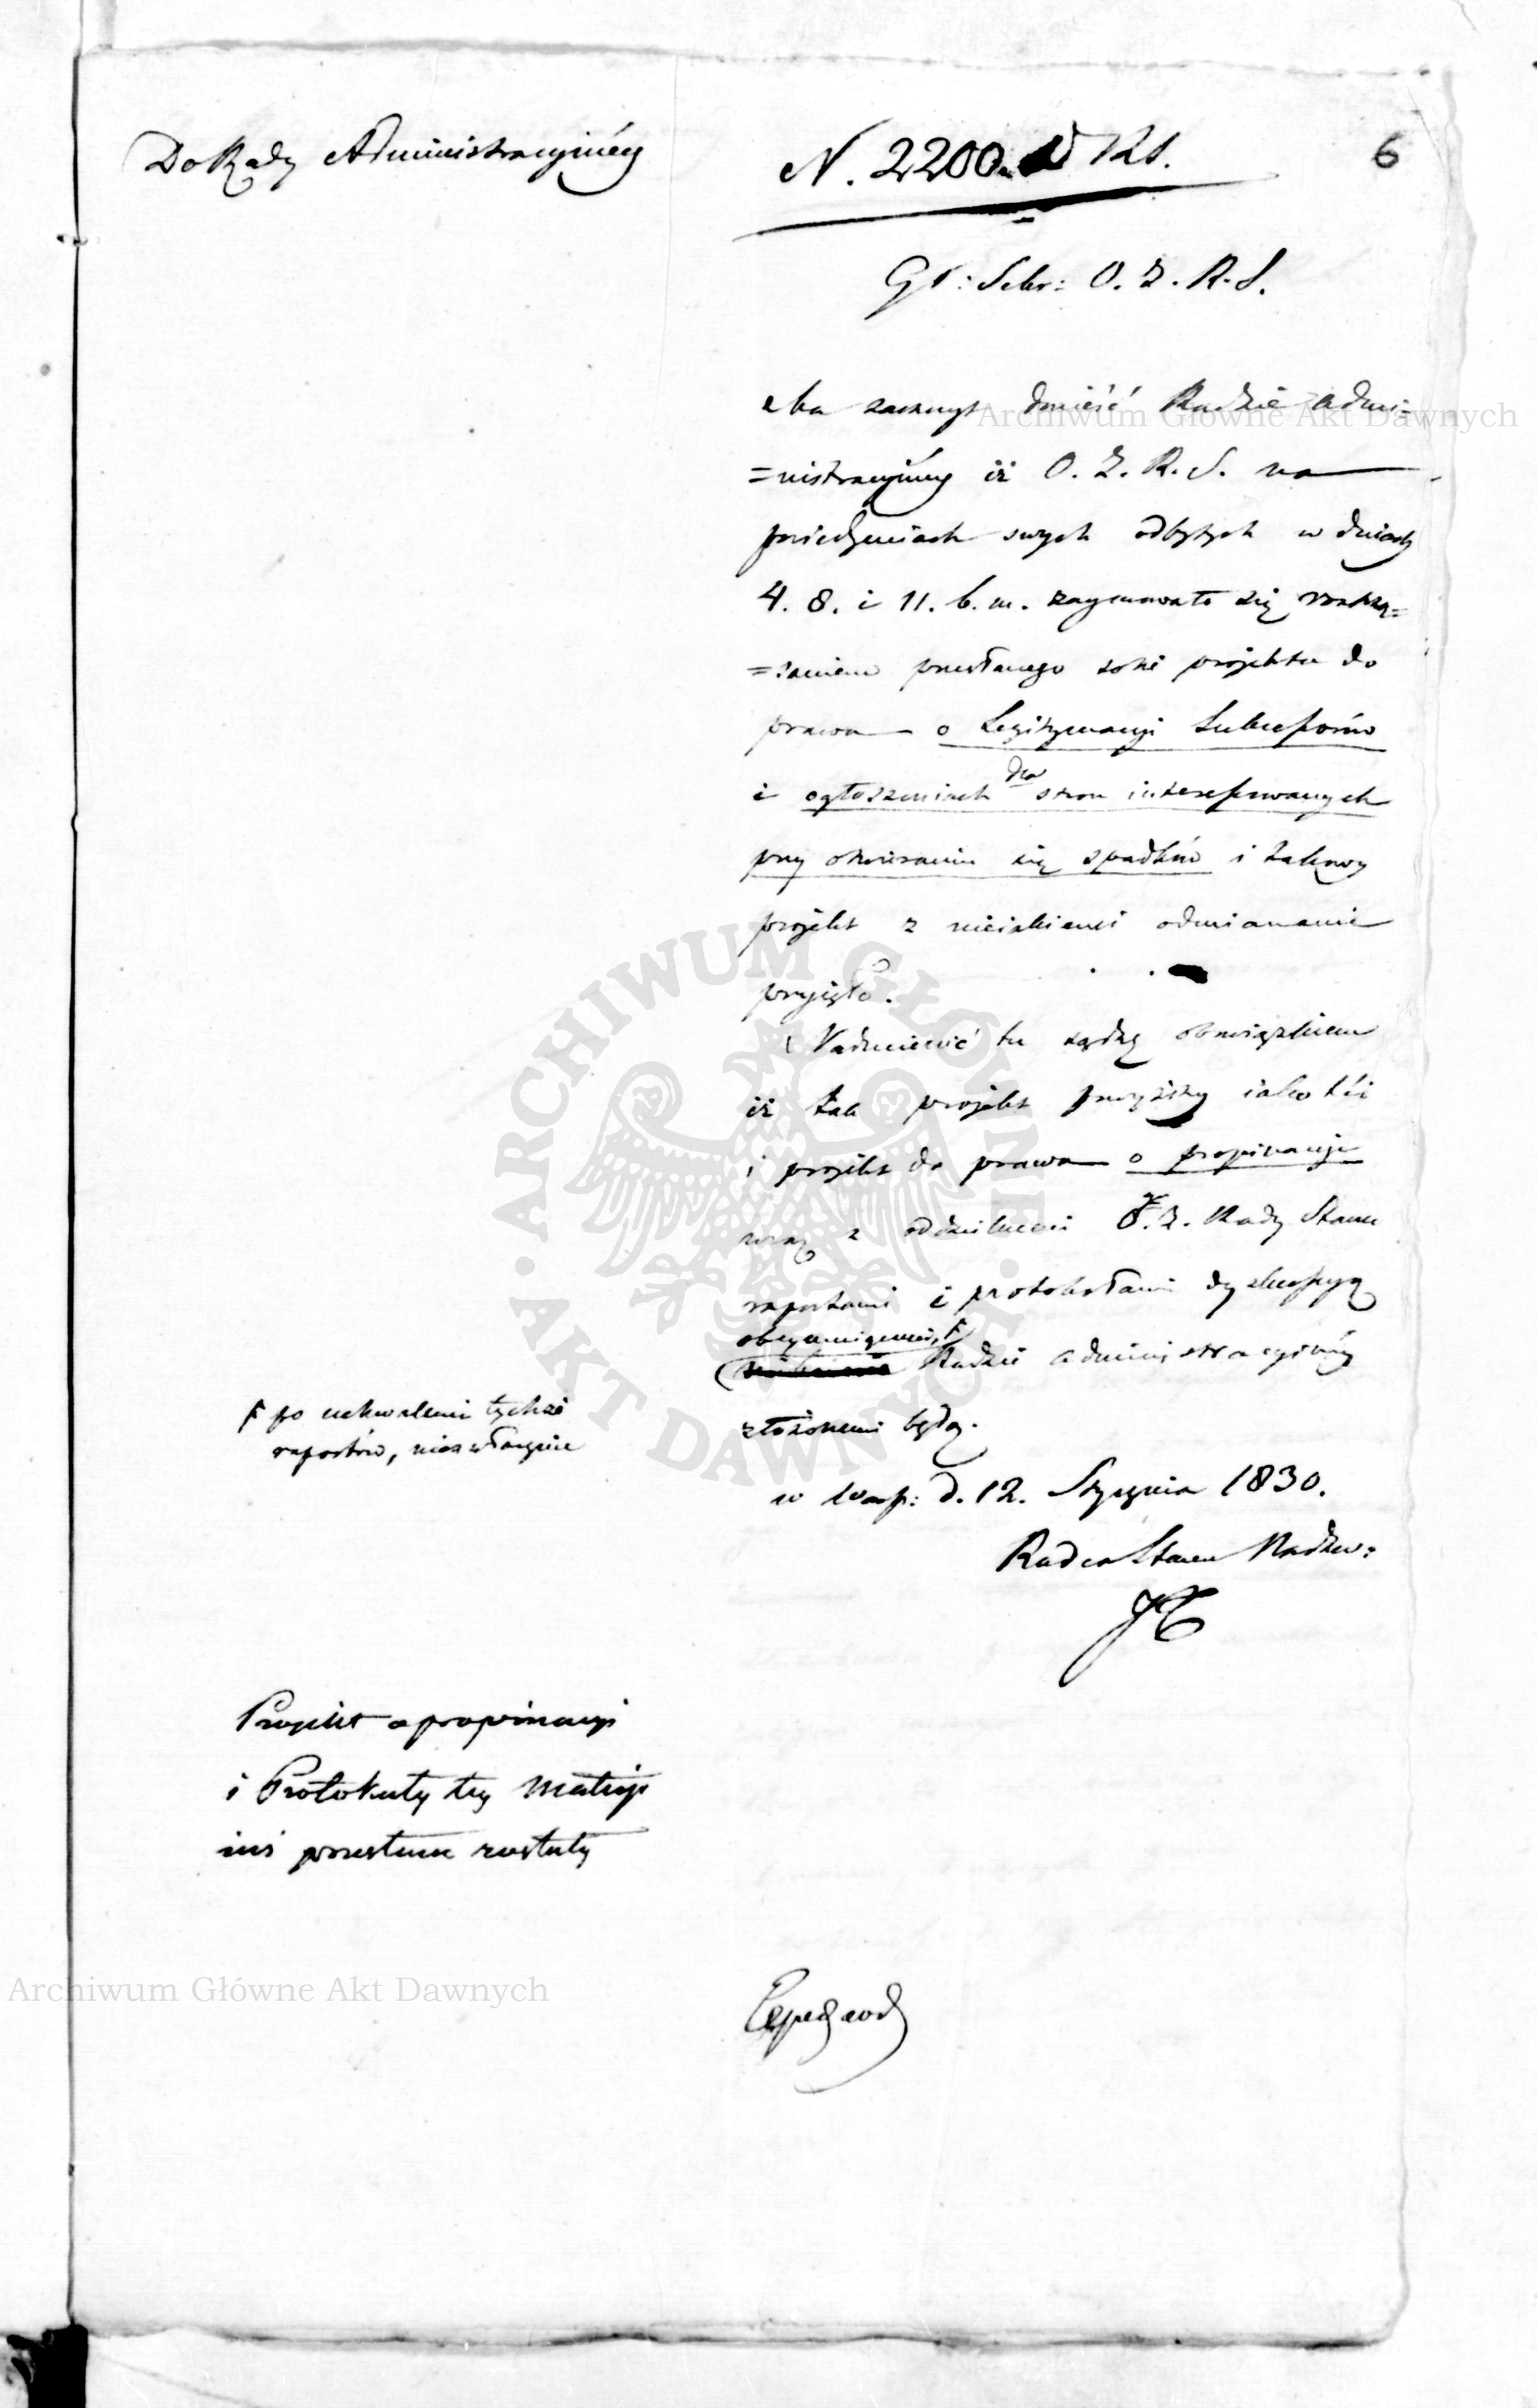 6
Do Rady Administracyinéy
N. 2200. D Kl.
Gł: Sekr: O. Z. R. S.
Ma zaszczyt donieść Radzie Admi=
=nistracyinéy iż O. Z. R. S. na
posiedzeniach swych odbytych w dniach
4. 8. i 11. b. m. zaymowało się roztrzą=
=saniem przesłanego sobie projektu do
prawa o Legitymacyi Sukcessorów
i ogłoszeniach dla stron interessowanych
przy otwieraniu się spadków i takowy
projekt z niejakiemi odmianami
przyięło.
Nadmienić tu sądzę obowiązkiem
iż tak projekt powyższy iako też
i projekt do prawa o propinacyi
wraz z oddzielnemi O. Z. Rady Stanu
raportami i protokołami dyskussyą
obeymuiącemi, F
Radzie Administracyinéy
złożonemi będą.
F po uchwaleniu tychże
raportów, niezwłocznie
w Warsz: d. 12. Stycznia 1830.
Radca Stanu Nadzw:
Projekt o propinacyi
i Protokuły téy materyi
iuż przesłane zostały
Archiwum Główne Akt Dawnych
Archiwum Główne Akt Dawnych
ARCHIWUM GŁÓWNE · AKT DAWNYCH ·